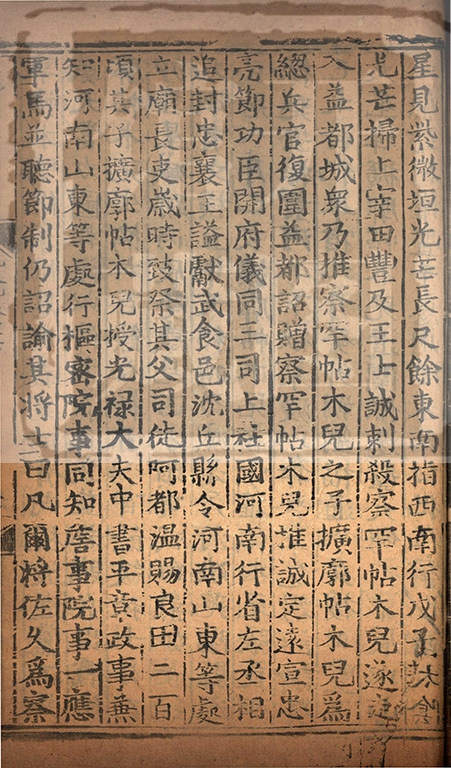 星見紫微垣光芒長尺餘東南指西南行戊子
光芒掃上宰田豐及王士誠刺殺察罕帖木兒遂走
入益都城衆乃推察罕帖木兒之子擴廓帖木兒爲
總兵官復圍益都詔贈察罕帖木兒推誠定遠宣忠
亮節功臣開府儀同三司上柱國河南行省左丞相
追封忠襄王謚獻武食邑沈丘縣令河南山東等處
立廟長吏歲時致祭其父司徒阿都溫賜良田二百
頃其子擴廓帖木兒授光禄大夫中書平章政事兼
知河南山東等處行樞密院事同知詹事院事一應
軍馬並聽節制仍詔諭其將士曰凡爾將佐久爲察